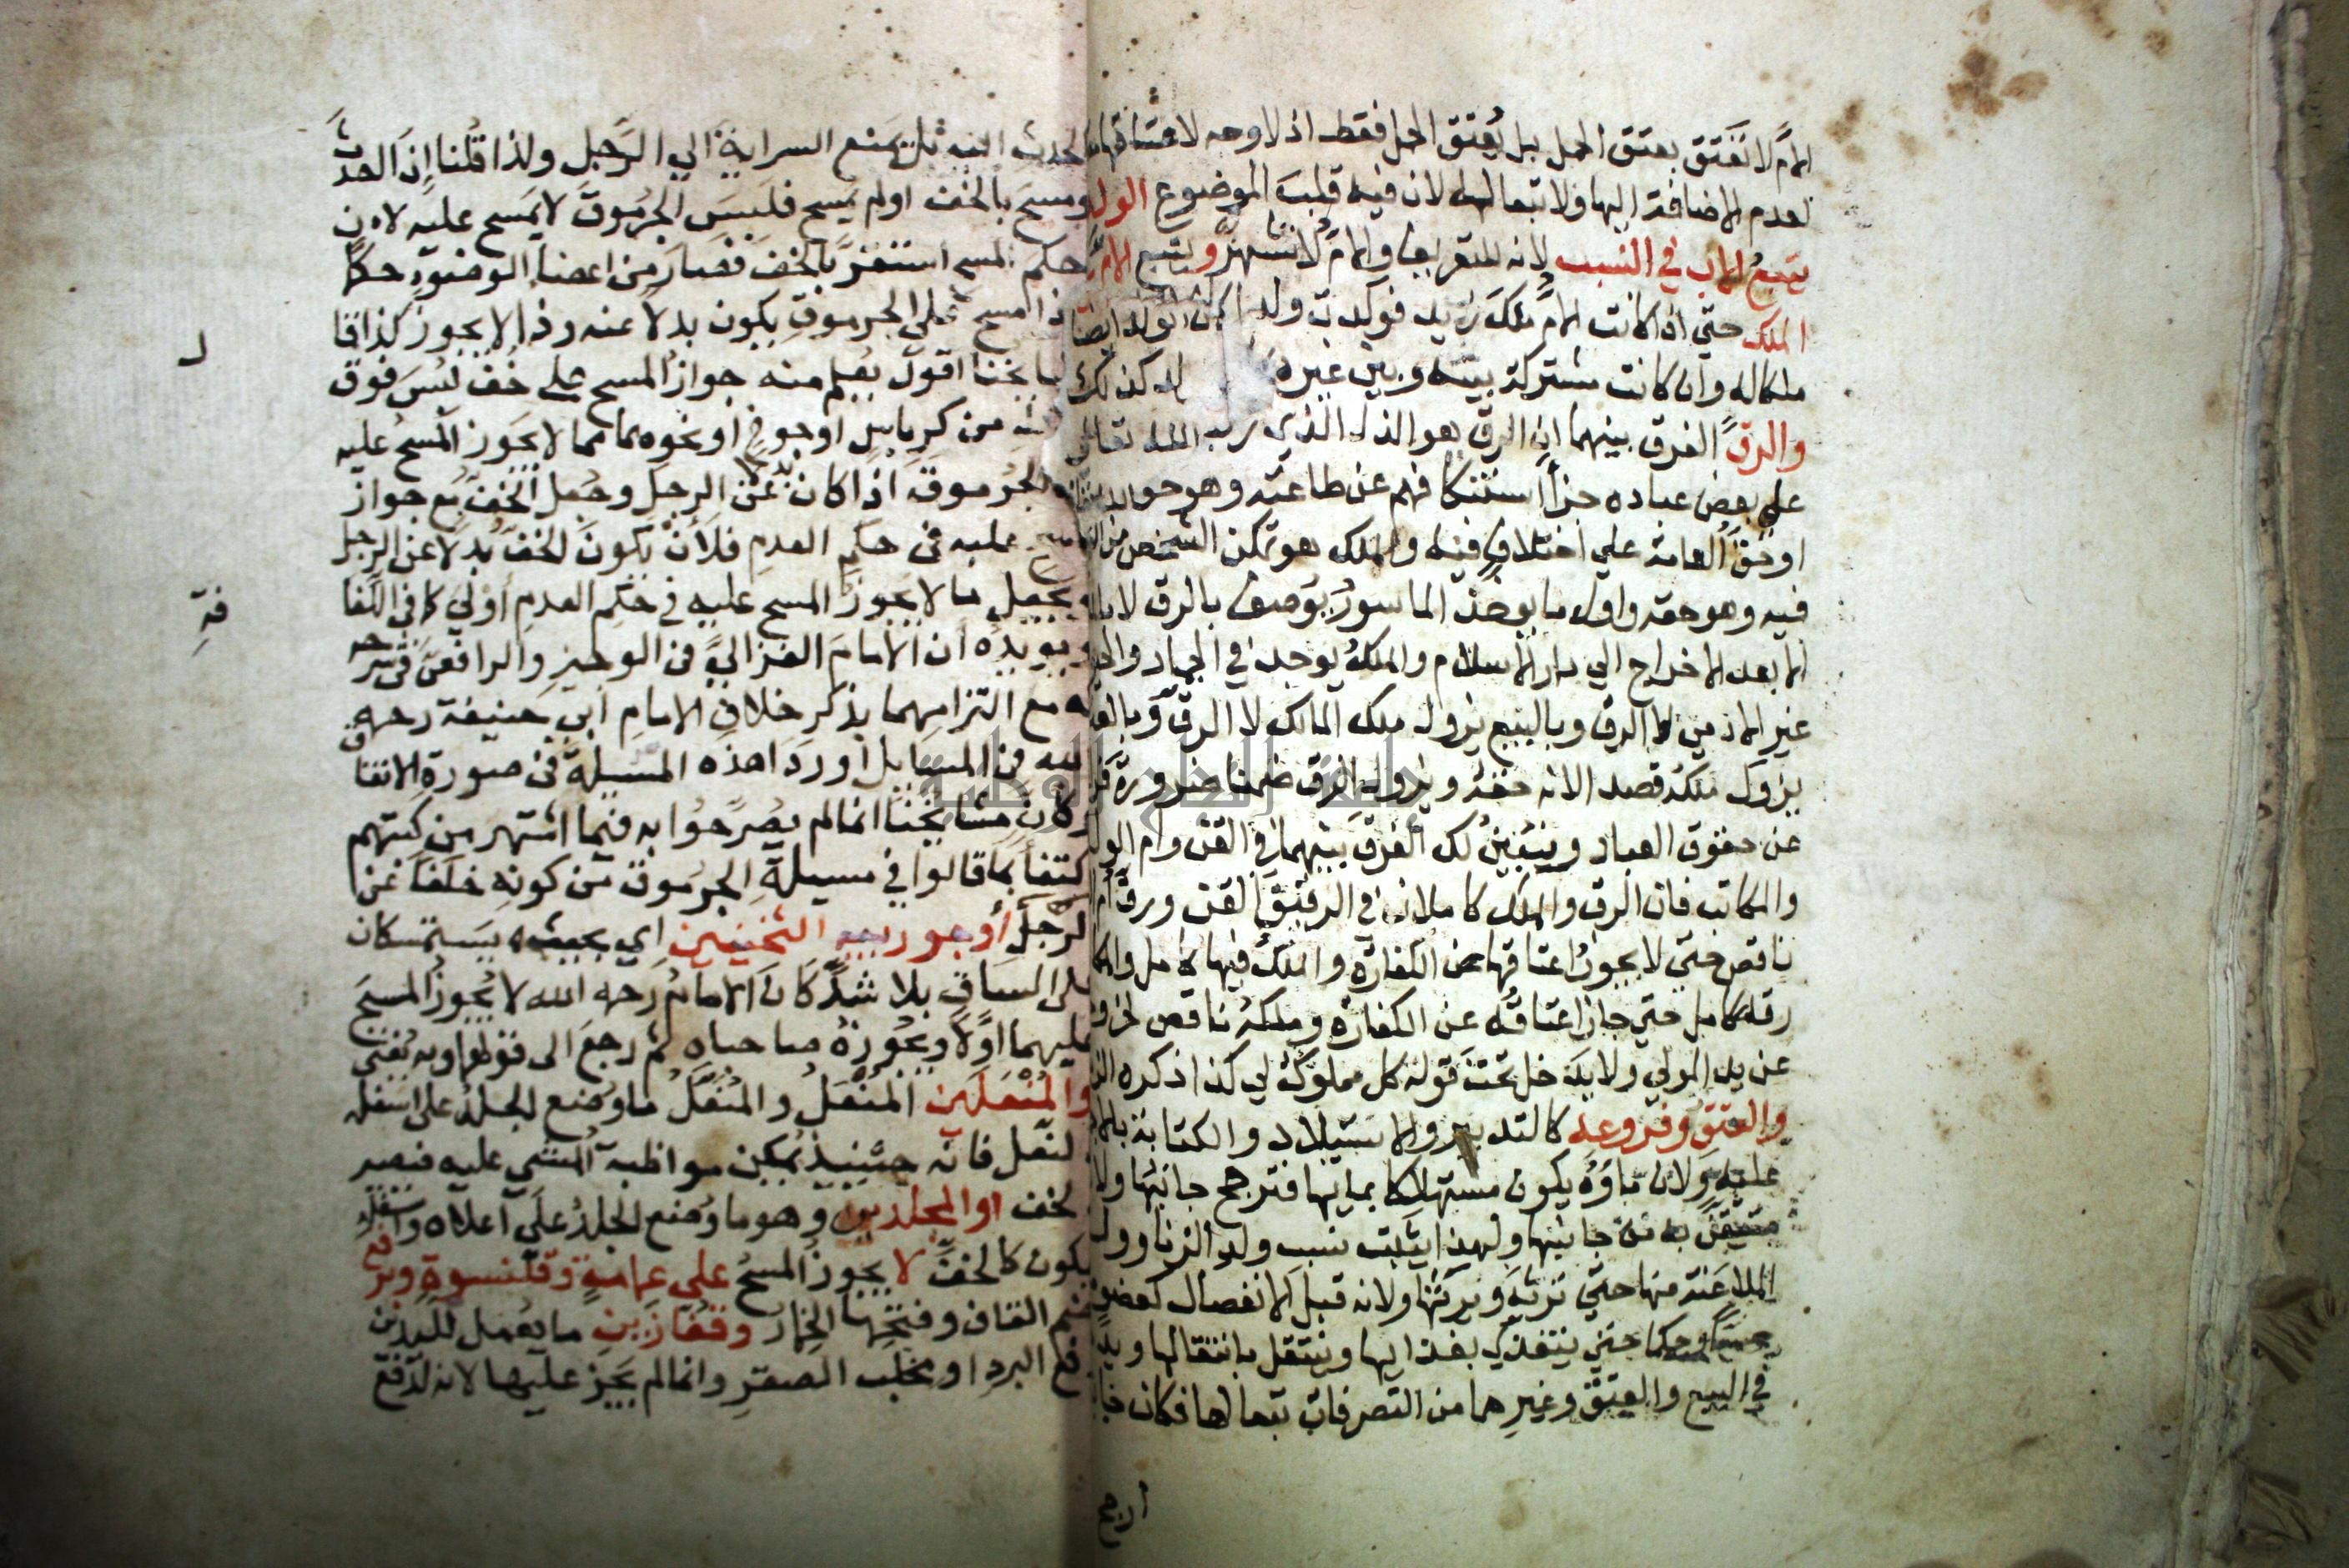 الام لا تعتق بعتق الحمل بل يُعتق الحمل فقط اذ لا وجه لاعتاقها
لعدم الاضافة اليها ولا تبعا لهه لان فيه قلبَ الموضوع الولد
يتبعُ الاب في النسب لانه للتعريف والامُّ لا تشتهر ويتبع الامَّ
الملك حتي اذا كانت الامّ ملكَ زيد فولدت ولدا الولد ايضا
ملكا له وان كانت مشتركة بينه وبين غيره كذلك
والرق الفرق بينهما ان الرق هو الذل الذي الله تعالى
علي بعض عباده جزأ استنكافهم عن طاعته وهو حق الله تعالى
او حقُّ العامة علي اختلافٍ فيه والملك هو تمكن الشخص من
فيه وهو حقه واول ما يوخذ الماسور يوصف بالرق لا
الا بعد الاخراج الي دار الاسلام والملكُ يوجد في الجماد
غير الادمي لا الرق وبالبيع يزول ملك المالك لا الرق وبالعتق
يزول ملكه قصدا لانه حقه ويزول الرق ضمنا ضرورة
عن حقوق العباد ويتبين لك الفرق بينهما في القن وام الولد
والمكاتب فان الرق والملك كاملان في الرقيق القن ورقّ ام
ناقص حتي لا يجوز اعتاقها عن الكفارة والملك فيها كامل
رقه كامل حتي جاز اعتاقه عن الكفارة وملكه ناقص
عن يد المولي ولا يدخل تحت قوله كل مملوك لي كذا ذكره
والعتق وفروعه كالتدبير والاستيلاد والكتابة بالاجماع
عليه ولان ماؤه يكون مستهلكا بمايها فترجح جانبُها
متيقن به من جانبها ولهذا يثبت نسب ولد الزنا وولد
الملاعنة منها حتي ترثه ويرثها ولانه قبل الانفصال كعضو
حكما حتي يتغذي بغذايها وينتقل بانتقالها
في البيع والعتق وغيرهما من التصرفات تبعا لها فكان
ارجح
الحدث يمنع السراية الي الرَّجل ولذا قلنا إن الحدث
ومسح بالخف او لم يمسح فلبسَ الجرموقَ لا يمسح عليه لان
حكم المسح استقرّ بالخف فصار من اعضاء الوضوء حكماً
المسح علي الجرموق يكون بدلا عنه وذا لا يجوز كذا قا
مشايخنا اقول يُعلم منه جواز المسح علي خُفّ لُبسَ فوق
من كرباس او جوخ او نحوهما مما لا يجوز المسح عليه
الجرموق اذا كان بدلا عن الرجل وجُعل الخفُّ مع جواز
المسح عليه في حكم العدم فلأن يكونَ الخفّ بدلا عن الرجل
ويجعل ما لا يجوز المسح عليه في حكم العدم اولي كما في اللفا
فة
ويويده ان الامامَ الغزاليّ في الوجيز والرافعي في شرحه
له مع التزامهما بذكر خلاف الامام ابي حنيفة رحمه
الله في المسايل اوردا هذه المسيلة في صورة الاتفاق
وكان مشايخنا انما لم يُصرّحوا به فيما اشتهر من كتبهم
اكتفاءً بما قالوا في مسيلة الجرموق من كونه خلفاً عن
الرجل أو جوربيه الثخينين اي بحيث يستمسكان
علي الساق بلا شدّ كان الامام رحمه الله لا يُجوز المسحَ
عليهما اوّلاً ويجوزهُ صاحباه ثم رجع الى قولهما وبه يُفتي
والمُنْعَلَين المُنْعَلُ والمُنَعَّلُ ما وُضع الجلدُ على اسفله
كالنعل فانه حينيذٍ يمكن مواظبة المشي عليه فيصير
كالخف او المجلدين وهو ما وُضع الجلدُ علي اعلاه واسفله
يكون كالخفّ لا يجوز المسحُ علي عمامةٍ وقلنسوةٍ وبرقع
بضم القاف وفتحها الخمار وقُفّازين ما يُعمل لليدين
لدفع البرد او مخلب الصقر وانما لم يجز عليها لانه لدفع